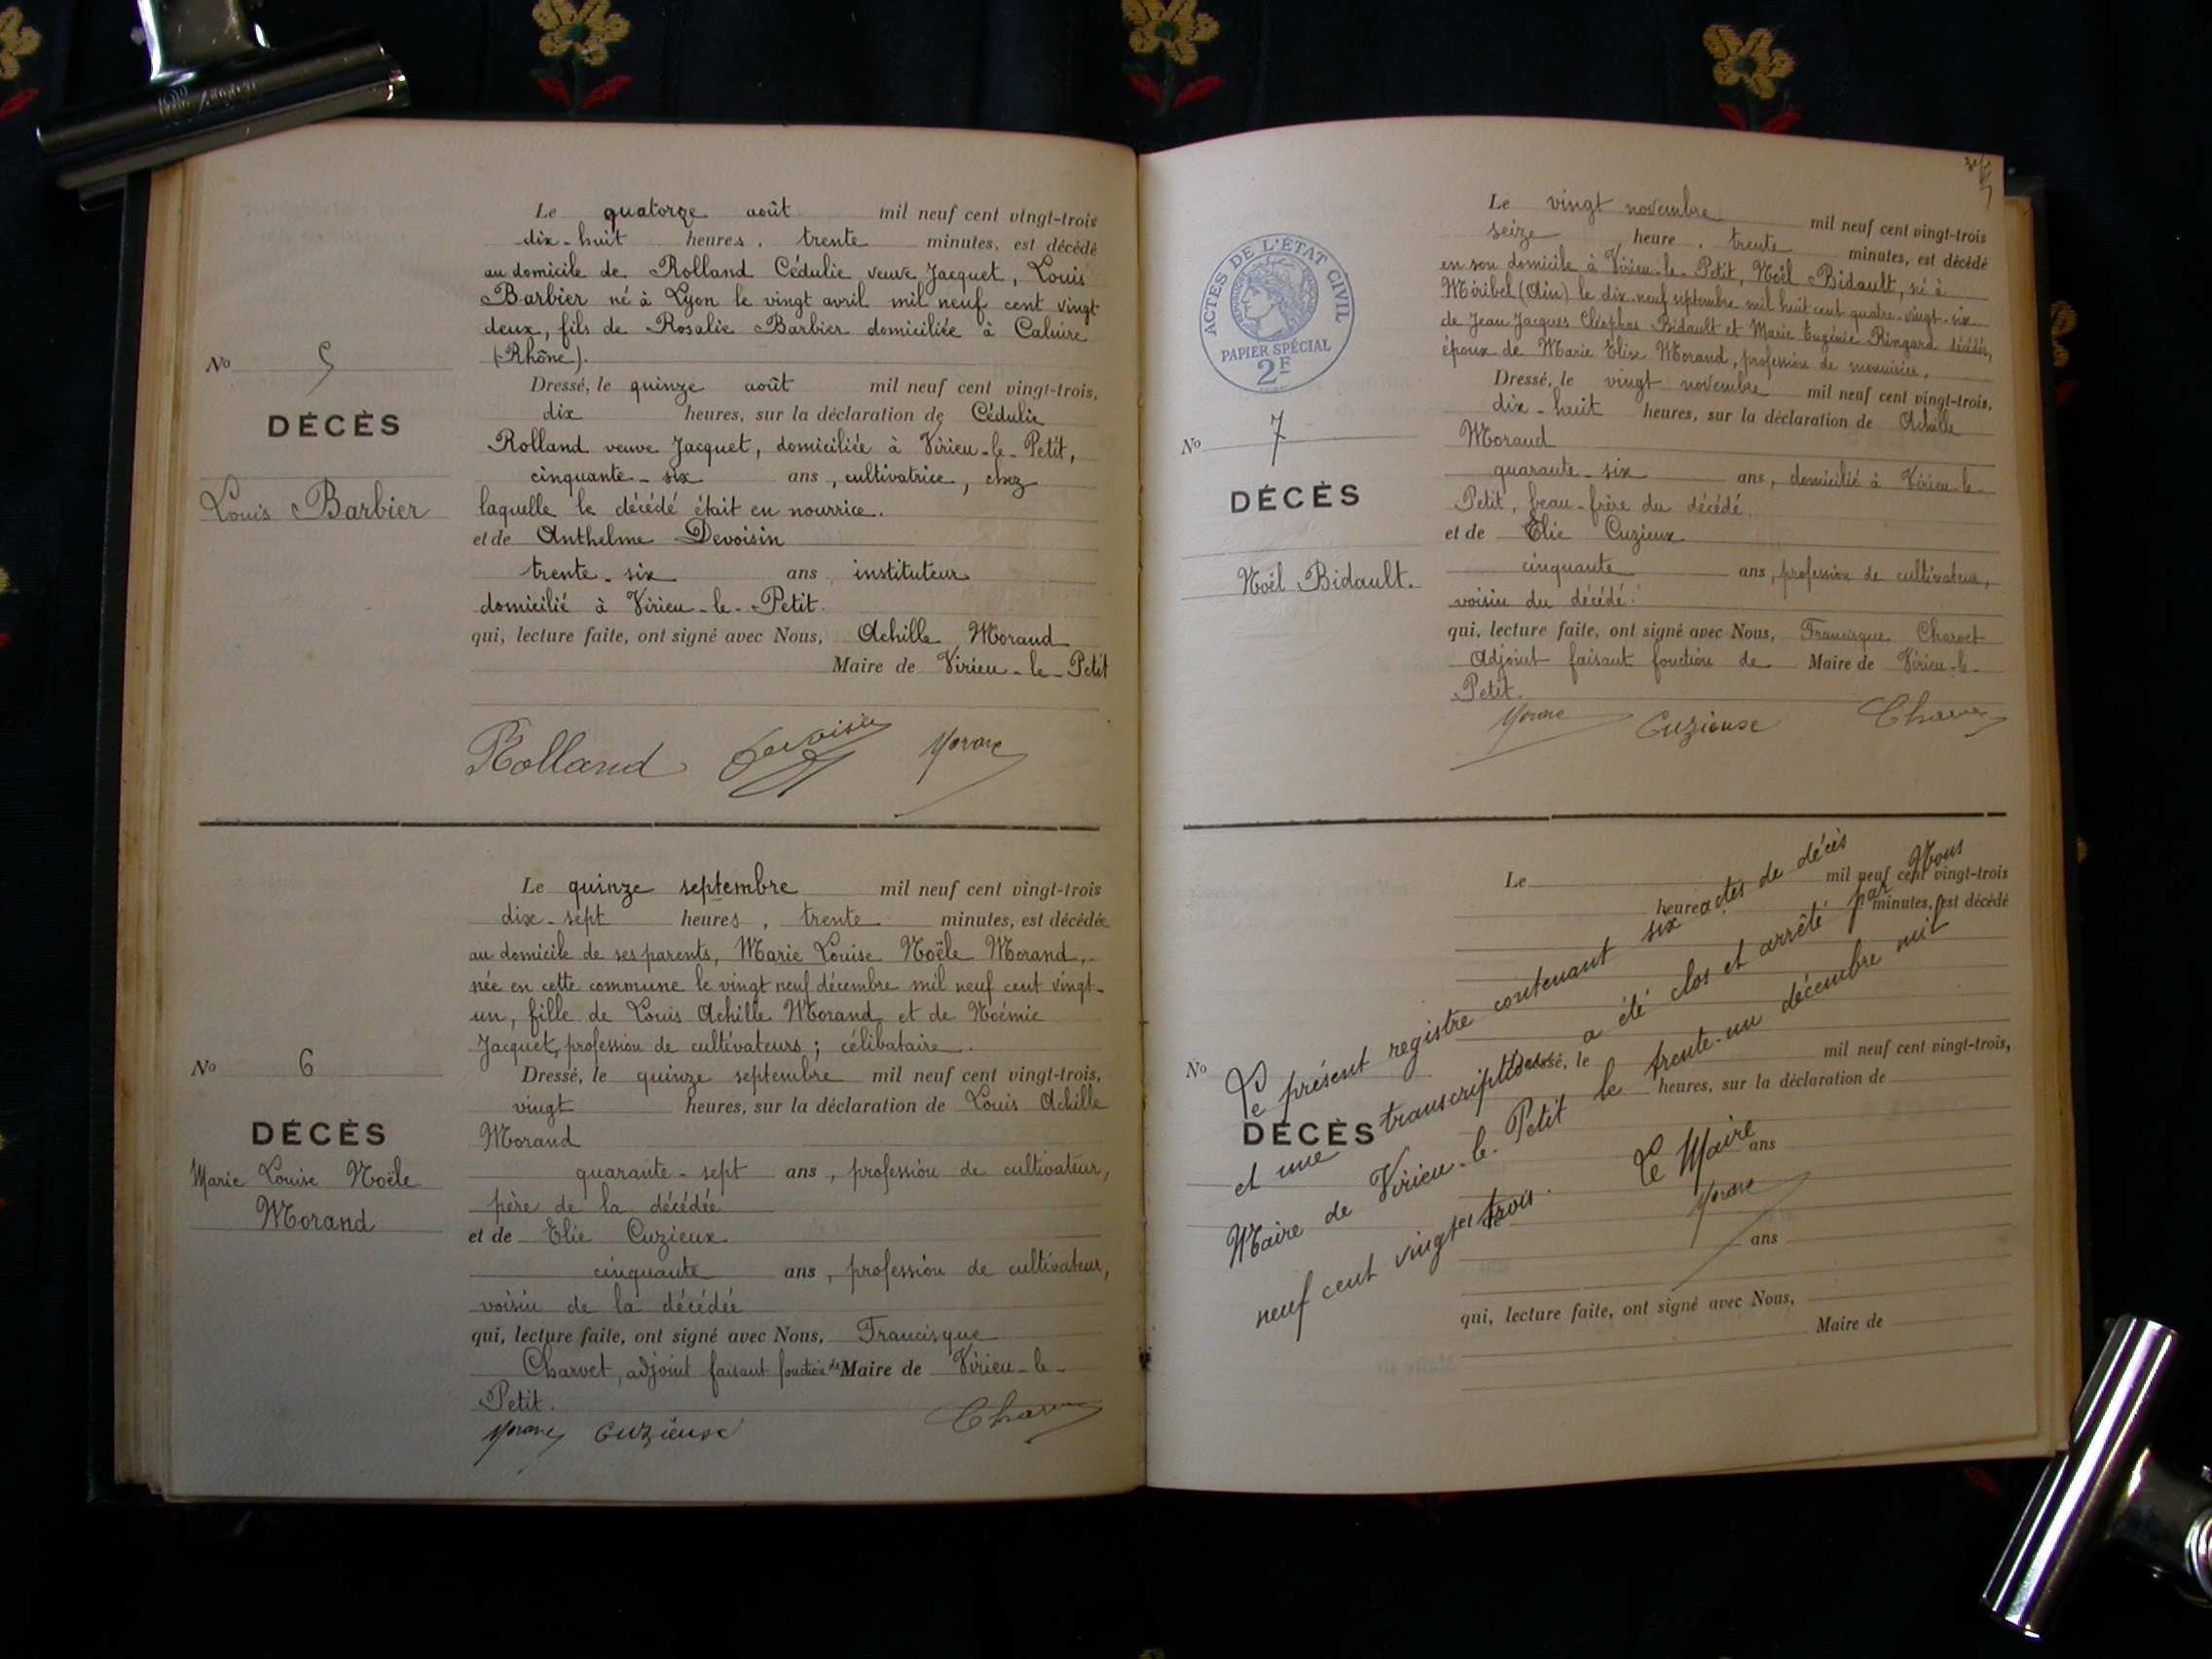 Le quatorze août mil neuf cent vingt-trois
dix-huit heures, trente minutes, est décédé
au domicile de Rolland Cédulie veuve Jacquet, Louis
Barbier né à Lyon le vingt avril mil neuf cent vingt
deux, fils de Rosalie Barbier domiciliée à Caluire
(Rhône).
No 5
DÉCÈS
Louis Barbier
Dressé, le quinze août mil neuf cent vingt-trois,
dix heures, sur la déclaration de Cédulie
Rolland veuve Jacquet, domiciliée à Virieu-le-Petit,
cinquante-six ans, cultivatrice, chez
laquelle le décédé était en nourrice.
et de Anthelme Devoisin
trente-six ans, instituteur
domicilié à Virieu-le-Petit.
qui, lecture faite, ont signé avec Nous, Achille Morand
Maire de Virieu-le-Petit
Rolland Devoisin Morand
Le quinze septembre mil neuf cent vingt-trois
dix-sept heures, trente minutes, est décédée
au domicile de ses parents, Marie Louise Noële Morand,
née en cette commune le vingt neuf décembre mil neuf cent vingt-
un, fille de Louis Achille Morand et de Noémie
Jacquet, profession de cultivateurs ; célibataire.
No 6
DÉCÈS
Marie Louise Noële
Morand
Dressé, le quinze septembre mil neuf cent vingt-trois,
vingt heures, sur la déclaration de Louis Achille
Morand
quarante-sept ans, profession de cultivateur,
père de la décédée
et de Elie Cuzieux
cinquante ans, profession de cultivateur,
voisin de la décédée
qui, lecture faite, ont signé avec Nous, Francisque
Charvet, adjoint faisant fonction de Maire de Virieu-le-
Petit.
Morand Cuzieux Charvet
ACTES DE L'ÉTAT CIVIL
PAPIER SPÉCIAL
2F
Le vingt novembre mil neuf cent vingt-trois
seize heure, trente minutes, est décédé
en son domicile à Virieu-le-Petit, Noël Bidault, né à
Miribel (Ain) le dix-neuf septembre mil huit cent quatre-vingt-six
de Jean Jacques Cléophas Bidault et Marie Eugénie Ringard décédés,
époux de Marie Elise Morand, profession de menuisier,
No 7
DÉCÈS
Noël Bidault.
Dressé, le vingt novembre mil neuf cent vingt-trois,
dix-huit heures, sur la déclaration de Achille
Morand
quarante-six ans, domicilié à Virieu-le-
Petit, beau-frère du décédé
et de Elie Cuzieux
cinquante ans, profession de cultivateur,
voisin du décédé.
qui, lecture faite, ont signé avec Nous, Francisque Charvet
Adjoint faisant fonction de Maire de Virieu-le-
Petit.
Morand Cuzieux Charvet
Le mil neuf cent vingt-trois
heure minutes, est décédé
No
DÉCÈS
Dressé, le mil neuf cent vingt-trois,
heures, sur la déclaration de
ans
et de
ans
qui, lecture faite, ont signé avec Nous,
Maire de
Le présent registre contenant six actes de décès
et une transcription a été clos et arrêté par Nous
Maire de Virieu-le-Petit le trente-un décembre mil
neuf cent vingt trois.
Le Maire
Morand